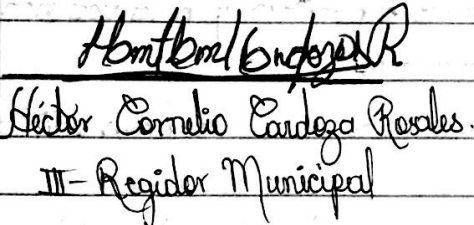 Héctor Cornelio Cardoza Rosales.
III- Regidor Municipal